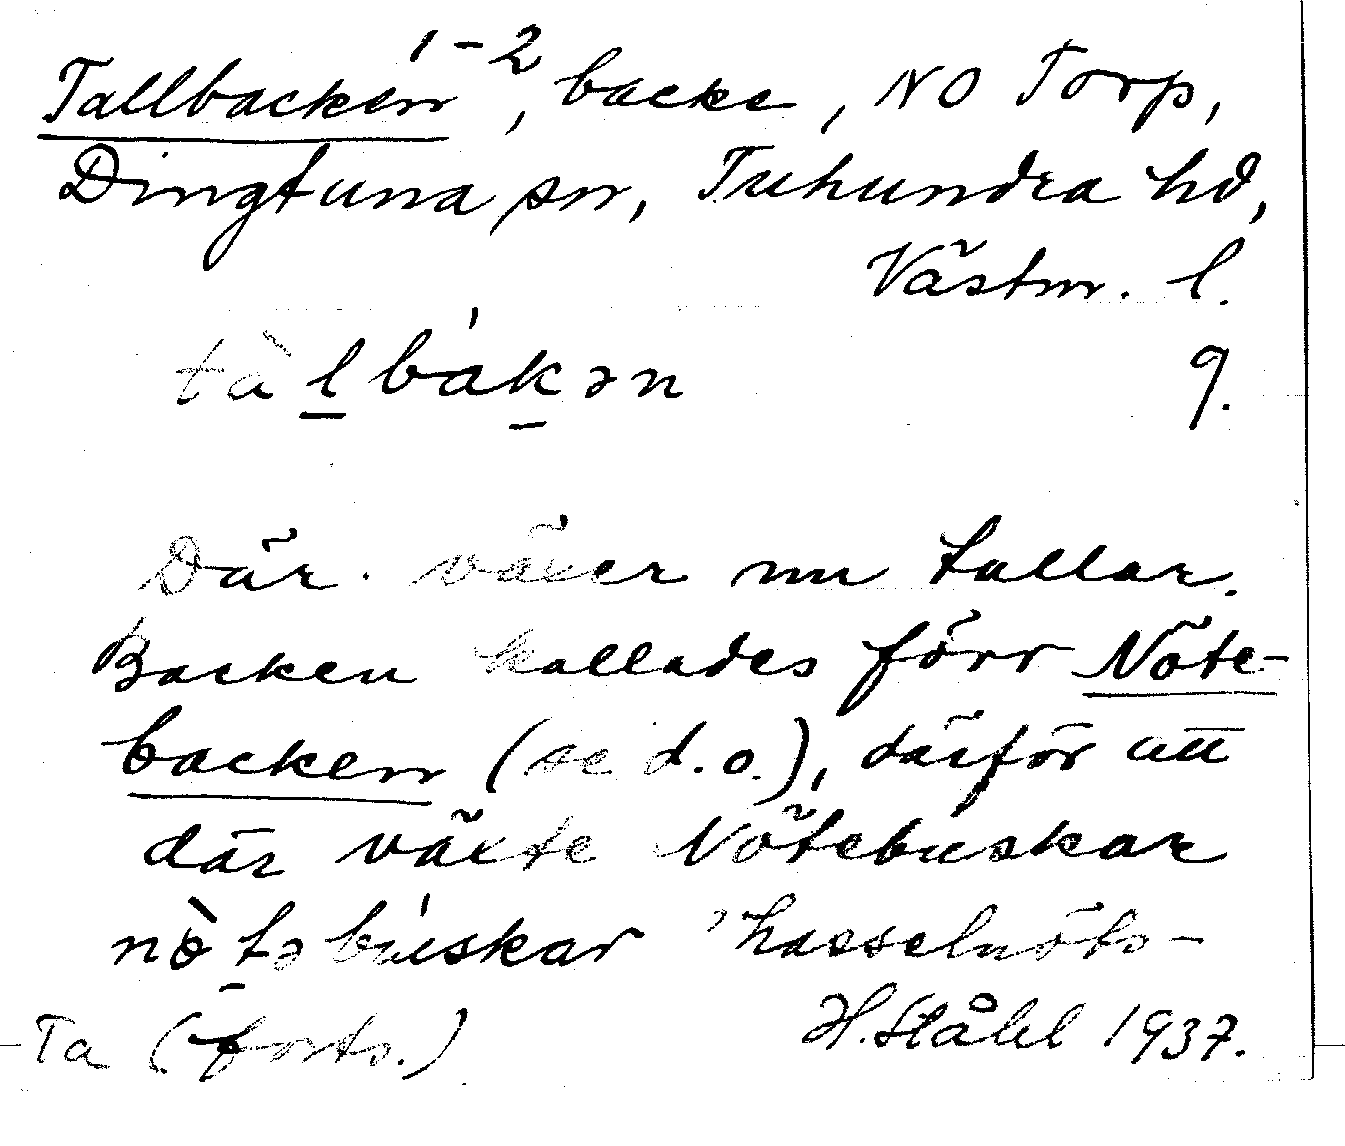 Tallbacken 1-2, backe, NO Torp,
Dingtuna sn, Tuhundra hd,
Västm. l.
tàl̠bák̠ən 9.
Där växer nu tallar.
Backen kallades förr Nöte-
backen (se d.o.), därför att
där växte Nötebuskar
nø̀t̠əbúskar 'hasselnöts-
Ta (forts.) H. Ståhl 1937.